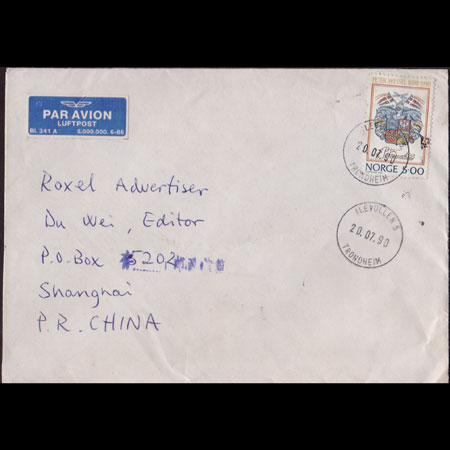 PAR AVION
LUFTPOST
Bl. 341 A 5.000.000. 6-86
NORGE 5·00
20.07.90
TRONDHEIM
ILEVOLLEN 5
20.07.90
TRONDHEIM
Roxel Advertiser
Du Wei, Editor
P.O.Box 5202
Shanghai
P.R. CHINA